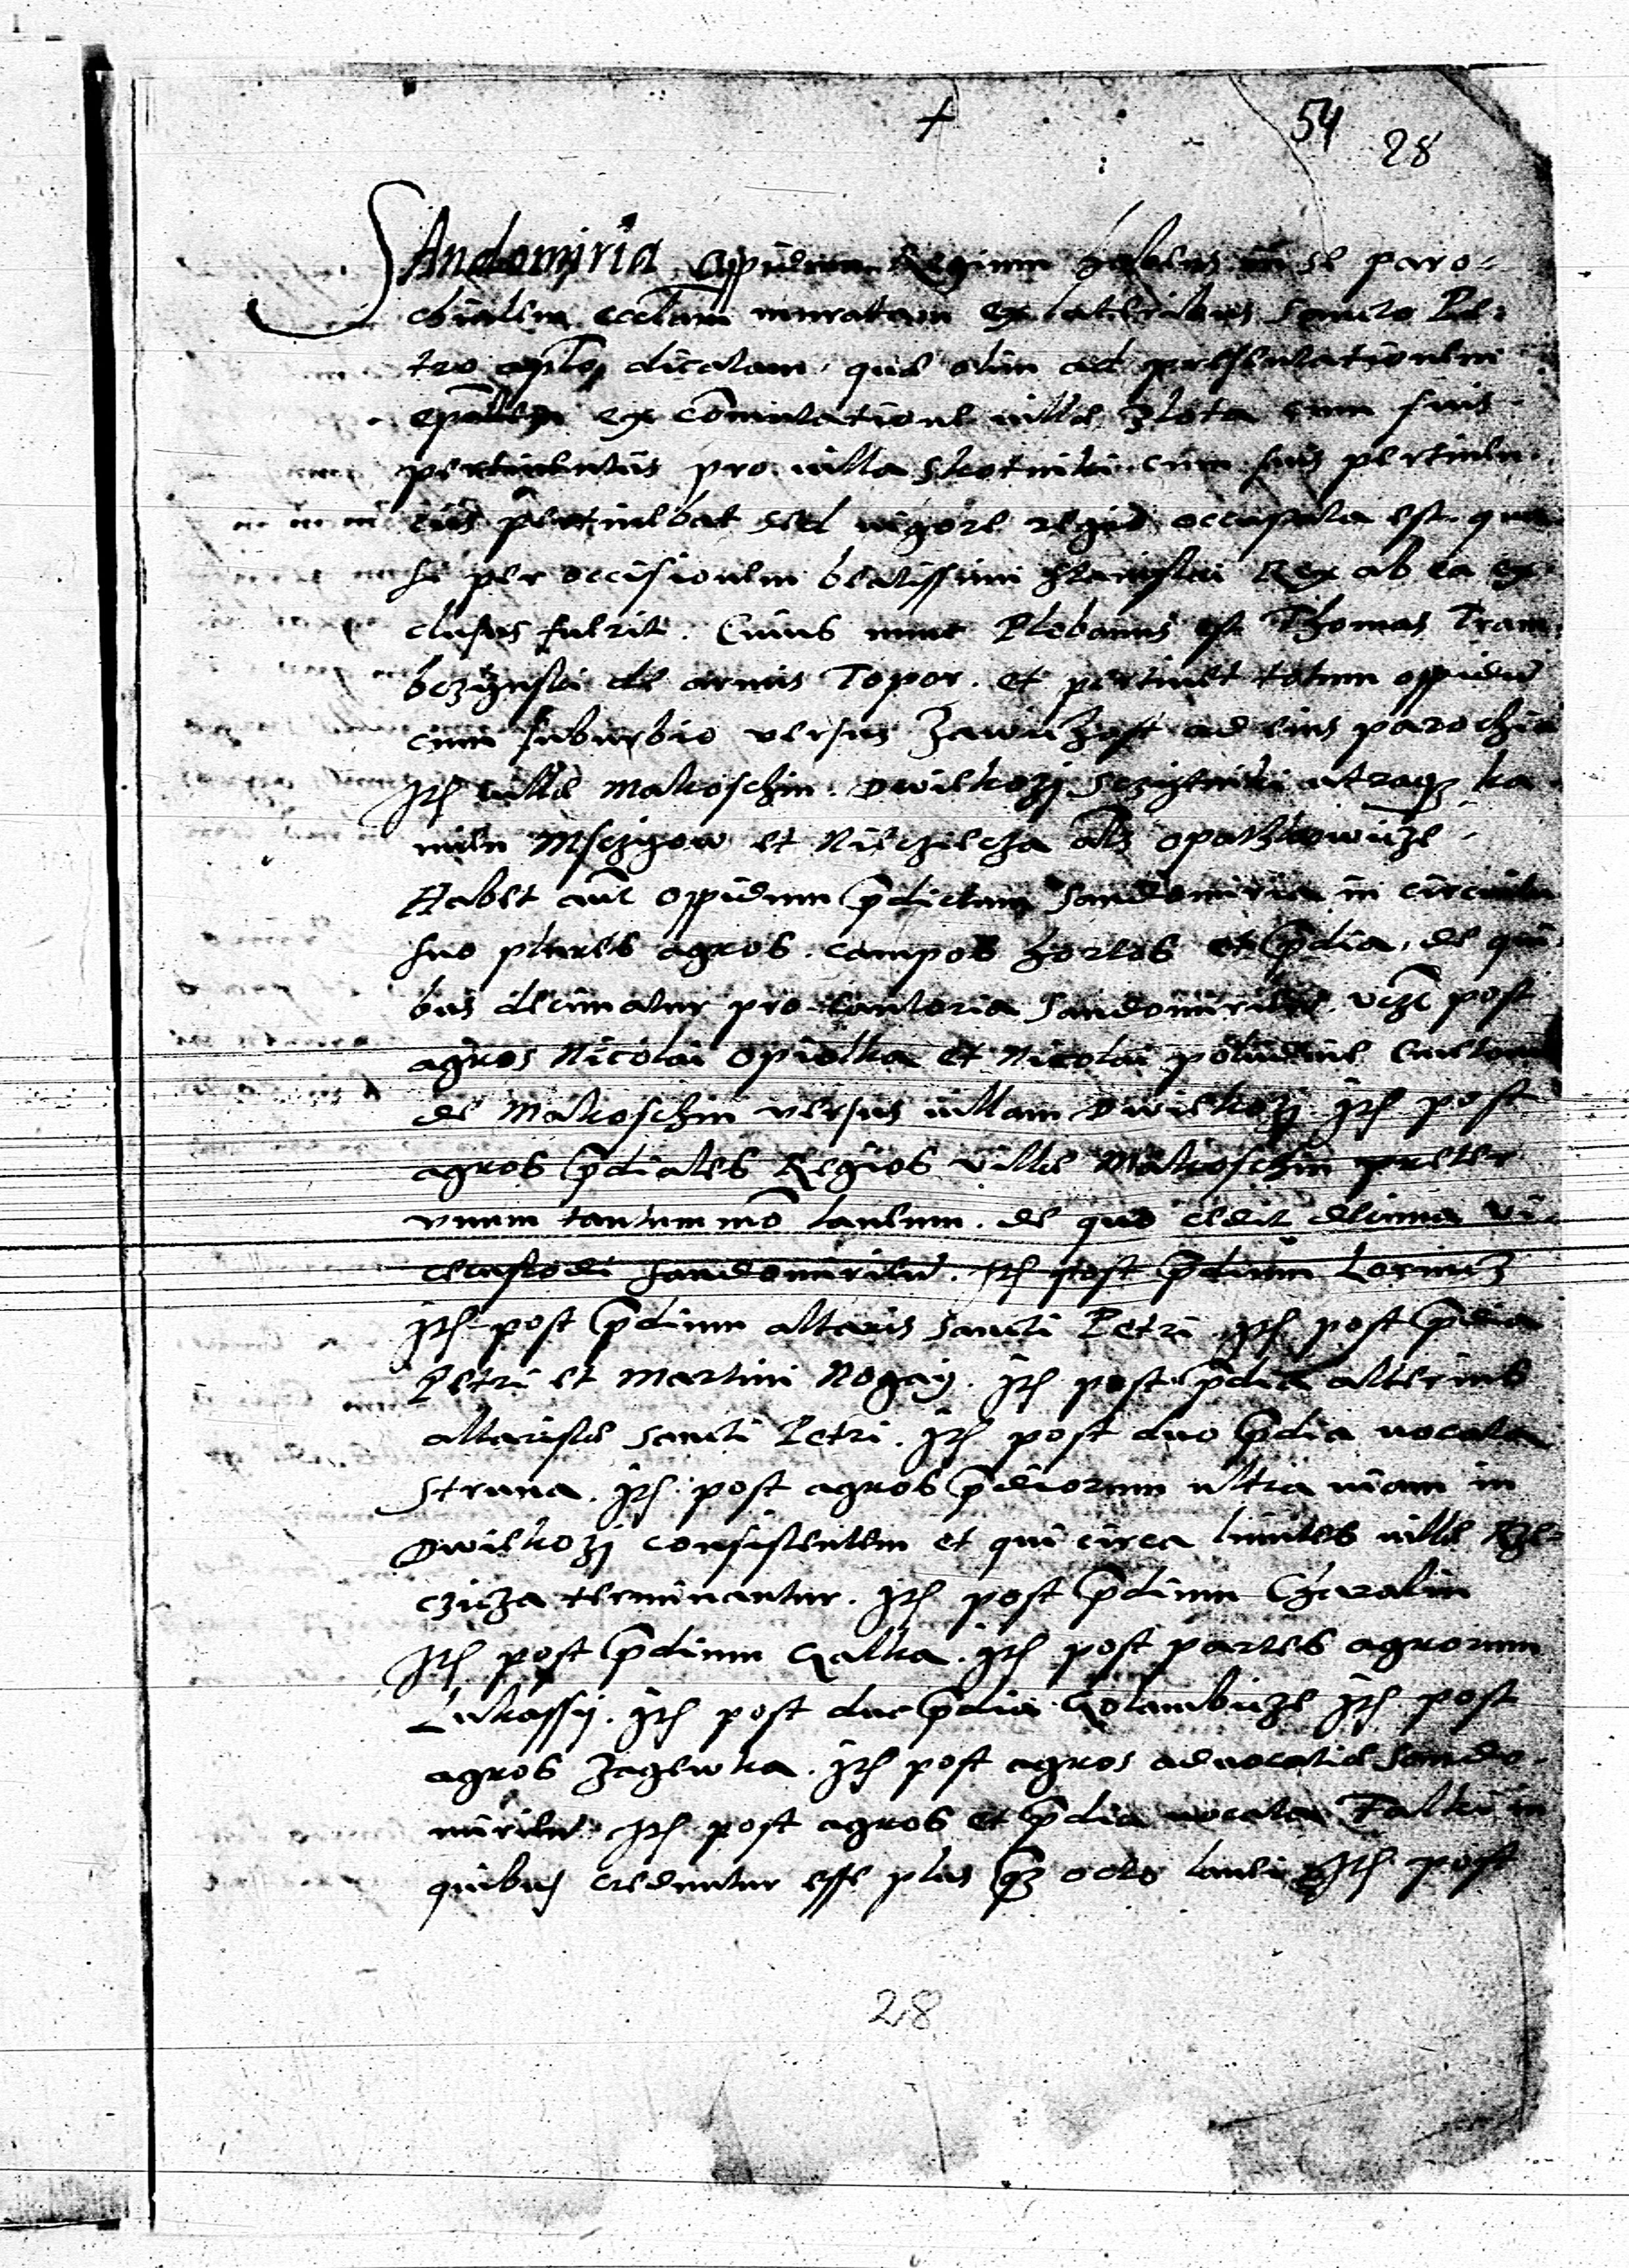 +
54 28
SAndomiria oppidum Regium habens in se paro-
chialem eccl̄iam murattam ex lateribus Sancto Pe-
tro ap̄lo dicatam, que olim ad presentationem
ep̄alem ex com̄utatione ville Zlota cum suis
pertinentiis pro villa Skotniki cum suis pertinen-
ciis pertinebat sed vigore regio occupata est, qua
si per occisionem beatissimi Stanislai Rex ab ea ex-
clusus fuerit. Cuius nunc Plebanus est Thomas Tram
bczynski de armis Topor. et pertinet totum oppidū
cum suburbio versus Zawichost ad eius parochiā
Itē ville Makoschin. Dwiekozj Sczithniki utraqʒ ka
mien Msczyow et Niecziecza als̄ opathkowicze.
Habet aut̄ oppidum p̄dictum Sandomiria in circuitu
suo plures agros. campos hortos et p̄dia, de qui
bus decimatur pro cantoria Sandomirien̄. vcz̄ post
agros Nicolai Opiolka et Nicolai
de Makoschin versus villam Dwiekozj. Itē post
agros p̄diales Regios ville Makoschin preter
vnum tantummō laneum. de quo cedit decima vi-
cecustodi Sandomirien̄. Itē post p̄dium Lorincz
Itē post p̄dium altaris Sancti Petri. Itē post p̄dia
Petri et Martini Nogaÿ. Itē post p̄dia alterius
altariste Sancti Petri. Itē post duo p̄dia vocata
Struna. Itē post agros p̄diorum ultra viam in
Dwiekozj consistentem et qui circa limites ville Rze-
czicza terminantur. Itē post p̄dium Charolin
Itē post p̄dium Galka. Itē post partes agrorum
Lukassÿ. Itē post duo p̄dia Golambicze Itē post
agros Zagewka. Itē post agros advocatie Sando-
mirien̄. Itē post agros et p̄dia vocata Falki in
quibus creduntur esse plus qʒ octo lanei Itē post
28